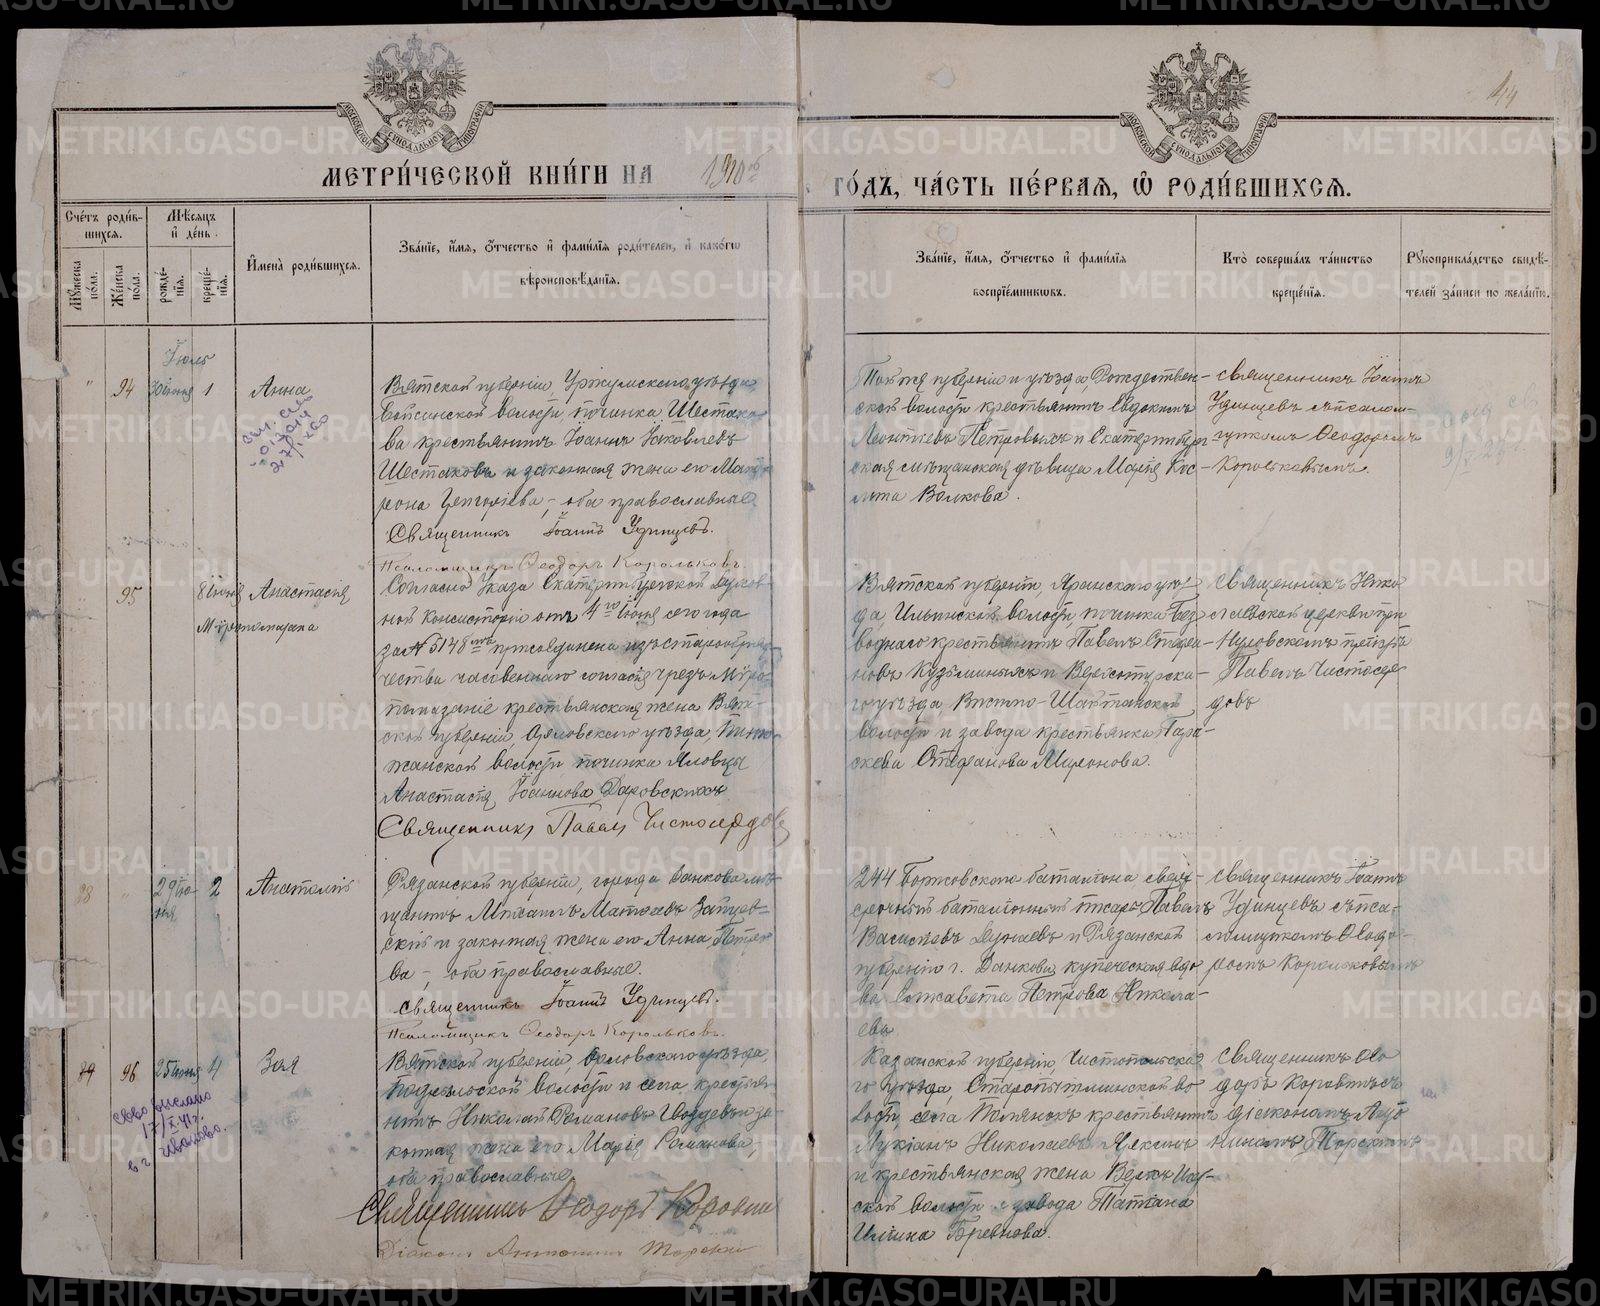 44
МОСКОВСКОЙ СѴНОДАЛЬНОЙ ТИПОГРАФІИ
МОСКОВСКОЙ СѴНОДАЛЬНОЙ ТИПОГРАФІИ
МЕТРИ́ЧЕСКОЙ КНИ́ГИ НА 1910 ГО́ДЪ, ЧА́СТЬ ПЕ́РВАѦ, Ѡ҆ РОДИ́ВШИХСѦ.
Сче́тъ роди́в-
шихсѧ.
Мꙋ́жеска по́ла.
Же́нска по́ла.
Мѣ́сѧцъ
и҆ де́нь.
рожде́-
нїѧ.
креще́-
нїѧ.
И҆мена̀ роди́вшихсѧ.
Зва́нїе, и҆́мѧ, ѻ҆́тчество и҆ фами́лїѧ роди́телей, и҆ како́гѡ
вѣроисповѣ́данїѧ.
Зва́нїе, и҆́мѧ, ѻ҆́тчество и҆ фами́лїѧ
воспрїе́мникѡвъ.
Кто̀ соверша́лъ та́инство
креще́нїѧ.
Рꙋкоприкла́дство свидѣ́-
телей за́писи по жела́нїю.
Іюль
" 94 30 іюня 1 Анна
Вятской губерніи Уржумскаго уѣзда
волости, починка Шестако-
ва крестьянинъ Іоаннъ Іаковлевъ
Шестаковъ и законная жена его Мат-
рона Григоріева, оба православные
Священникъ Іоаннъ Удинцевъ.
Псаломщикъ Ѳеодоръ Корольковъ.
Той же губерніи и уѣзда, Рождествен-
ской волости крестьянинъ Евдокимъ
Леонтіевъ Петровыхъ и Екатеринбург-
ская мѣщанская дѣвица Марія Кос-
мина Волкова.
Священникъ Іоаннъ
Удинцевъ съ псалом-
щикомъ Ѳеодоромъ
Корольковымъ.
95 8 іюня Анастасія
Мѵропомазана
Согласно Указа Екатеринбургской Духов-
ной Консисторіи отъ 4го іюня сего года
за № 5148 присоединена изъ старообряд-
чества часовеннаго согласія чрезъ Мѵро-
помазаніе крестьянская жена Вят-
ской губерніи, Орловскаго уѣзда,
волости починка Яловцы
Анастасія Іоаннова Даровскихъ
Священникъ Павелъ Чистосердовъ
Вятской губерніи, Яранскаго уѣз-
да, Ильинской волости, починка Без-
воднаго крестьянинъ Павелъ Стефа-
новъ Кузьминыхъ и Верхотурска-
го уѣзда, Висимо-Шайтанской
волости и завода крестьянка Пара-
скева Стефанова Миронова.
Священникъ Нико-
лаевской церкви при
Нуровскомъ пріютѣ
Павелъ Чистосер-
довъ
88 " 29 ію-
ня 2 Анатолій
Рязанской губерніи, города Данкова мѣ-
щанинъ Михаилъ Матѳеевъ Зайцев-
скій и законная жена его Анна Петро-
ва, оба православные.
Священникъ Іоаннъ Удинцевъ.
Псаломщикъ Ѳеодоръ Корольковъ.
244 Борисовскаго баталіона сверх-
срочный баталіонный писарь Павелъ
Васильевъ Дунаевъ и Рязанской
губерніи г. Данкова купеческая вдо-
ва Елисавета Петрова Никола-
ева
Священникъ Іоаннъ
Удинцевъ съ пса-
ломщикомъ Ѳеодо-
ромъ Корольковымъ
96 25 іюня 4 Зоя
17/X 41 г.
в г. Иваново.
Вятской губерніи, Орловскаго уѣзда,
Подрельской волости и села крестья-
нинъ Николай Романовъ и за-
конная жена его Марія Романова,
оба православные
Священникъ Ѳеодоръ Коровинъ
Діаконъ Антонинъ Торскій
Казанской губерніи, Чистопольска-
го уѣзда, во-
лости, села крестьянинъ
Лукіанъ Николаевъ Яксинъ
и крестьянская жена Верх-Исет-
ской волости и завода Татіана
Ильина Бревнова.
Священникъ Ѳео-
доръ Коровинъ съ
діакономъ Анто-
ниномъ Торскимъ
METRIKI.GASO-URAL.RU